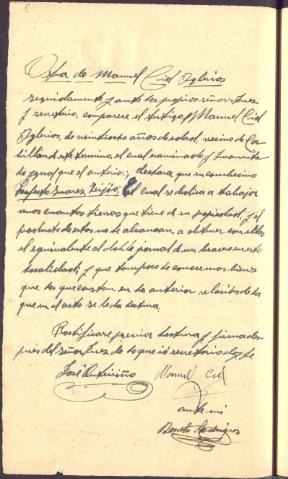 Otra de Manuel Cid Iglesias
seguidamente y ante los propios señores Juez
y secretario, comparece el testigo Manuel Cid
Iglesias, de veintiocho años de edad, vecino de
este termino, el cual examinado y
igual que el anterior; declara que
Suarez Feijóo, El cual se dedica a trabajar
unas cuantas tierras que tiene de su propiedad, y el
producto de estas no le alcanzan, a obtener con ellas
el equivalente al doble jornal de un bracero en esta
localidad, y que tampoco conocemos bienes
que los que constan en la anterior relacion de la
que en el acto se le da lectura.
Ratificase previa lectura y firma
pues del señor Juez de lo que yo secretario doy fe
José Manuel Cid
ante mi
Rodriguez